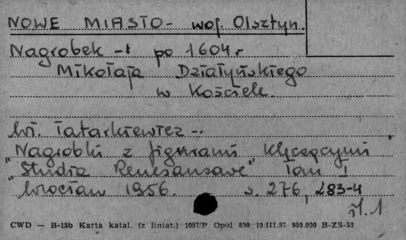 NOWE MIASTO - woj. Olsztyn.
Nagrobek - po 1604 r
Mikołaja Działyńskiego
w Kościele.
Wł. Tatarkiewicz -
"Nagrobki z figurami klęczącymi
"Studia Renesansowe" Tom I
Wrocław 1956. s. 276, 283-4
il. 1
CWD — B-15b Karta katal. (z liniat.) 1037/P Opol 890 19.III.57 950.000 B-ZS-55